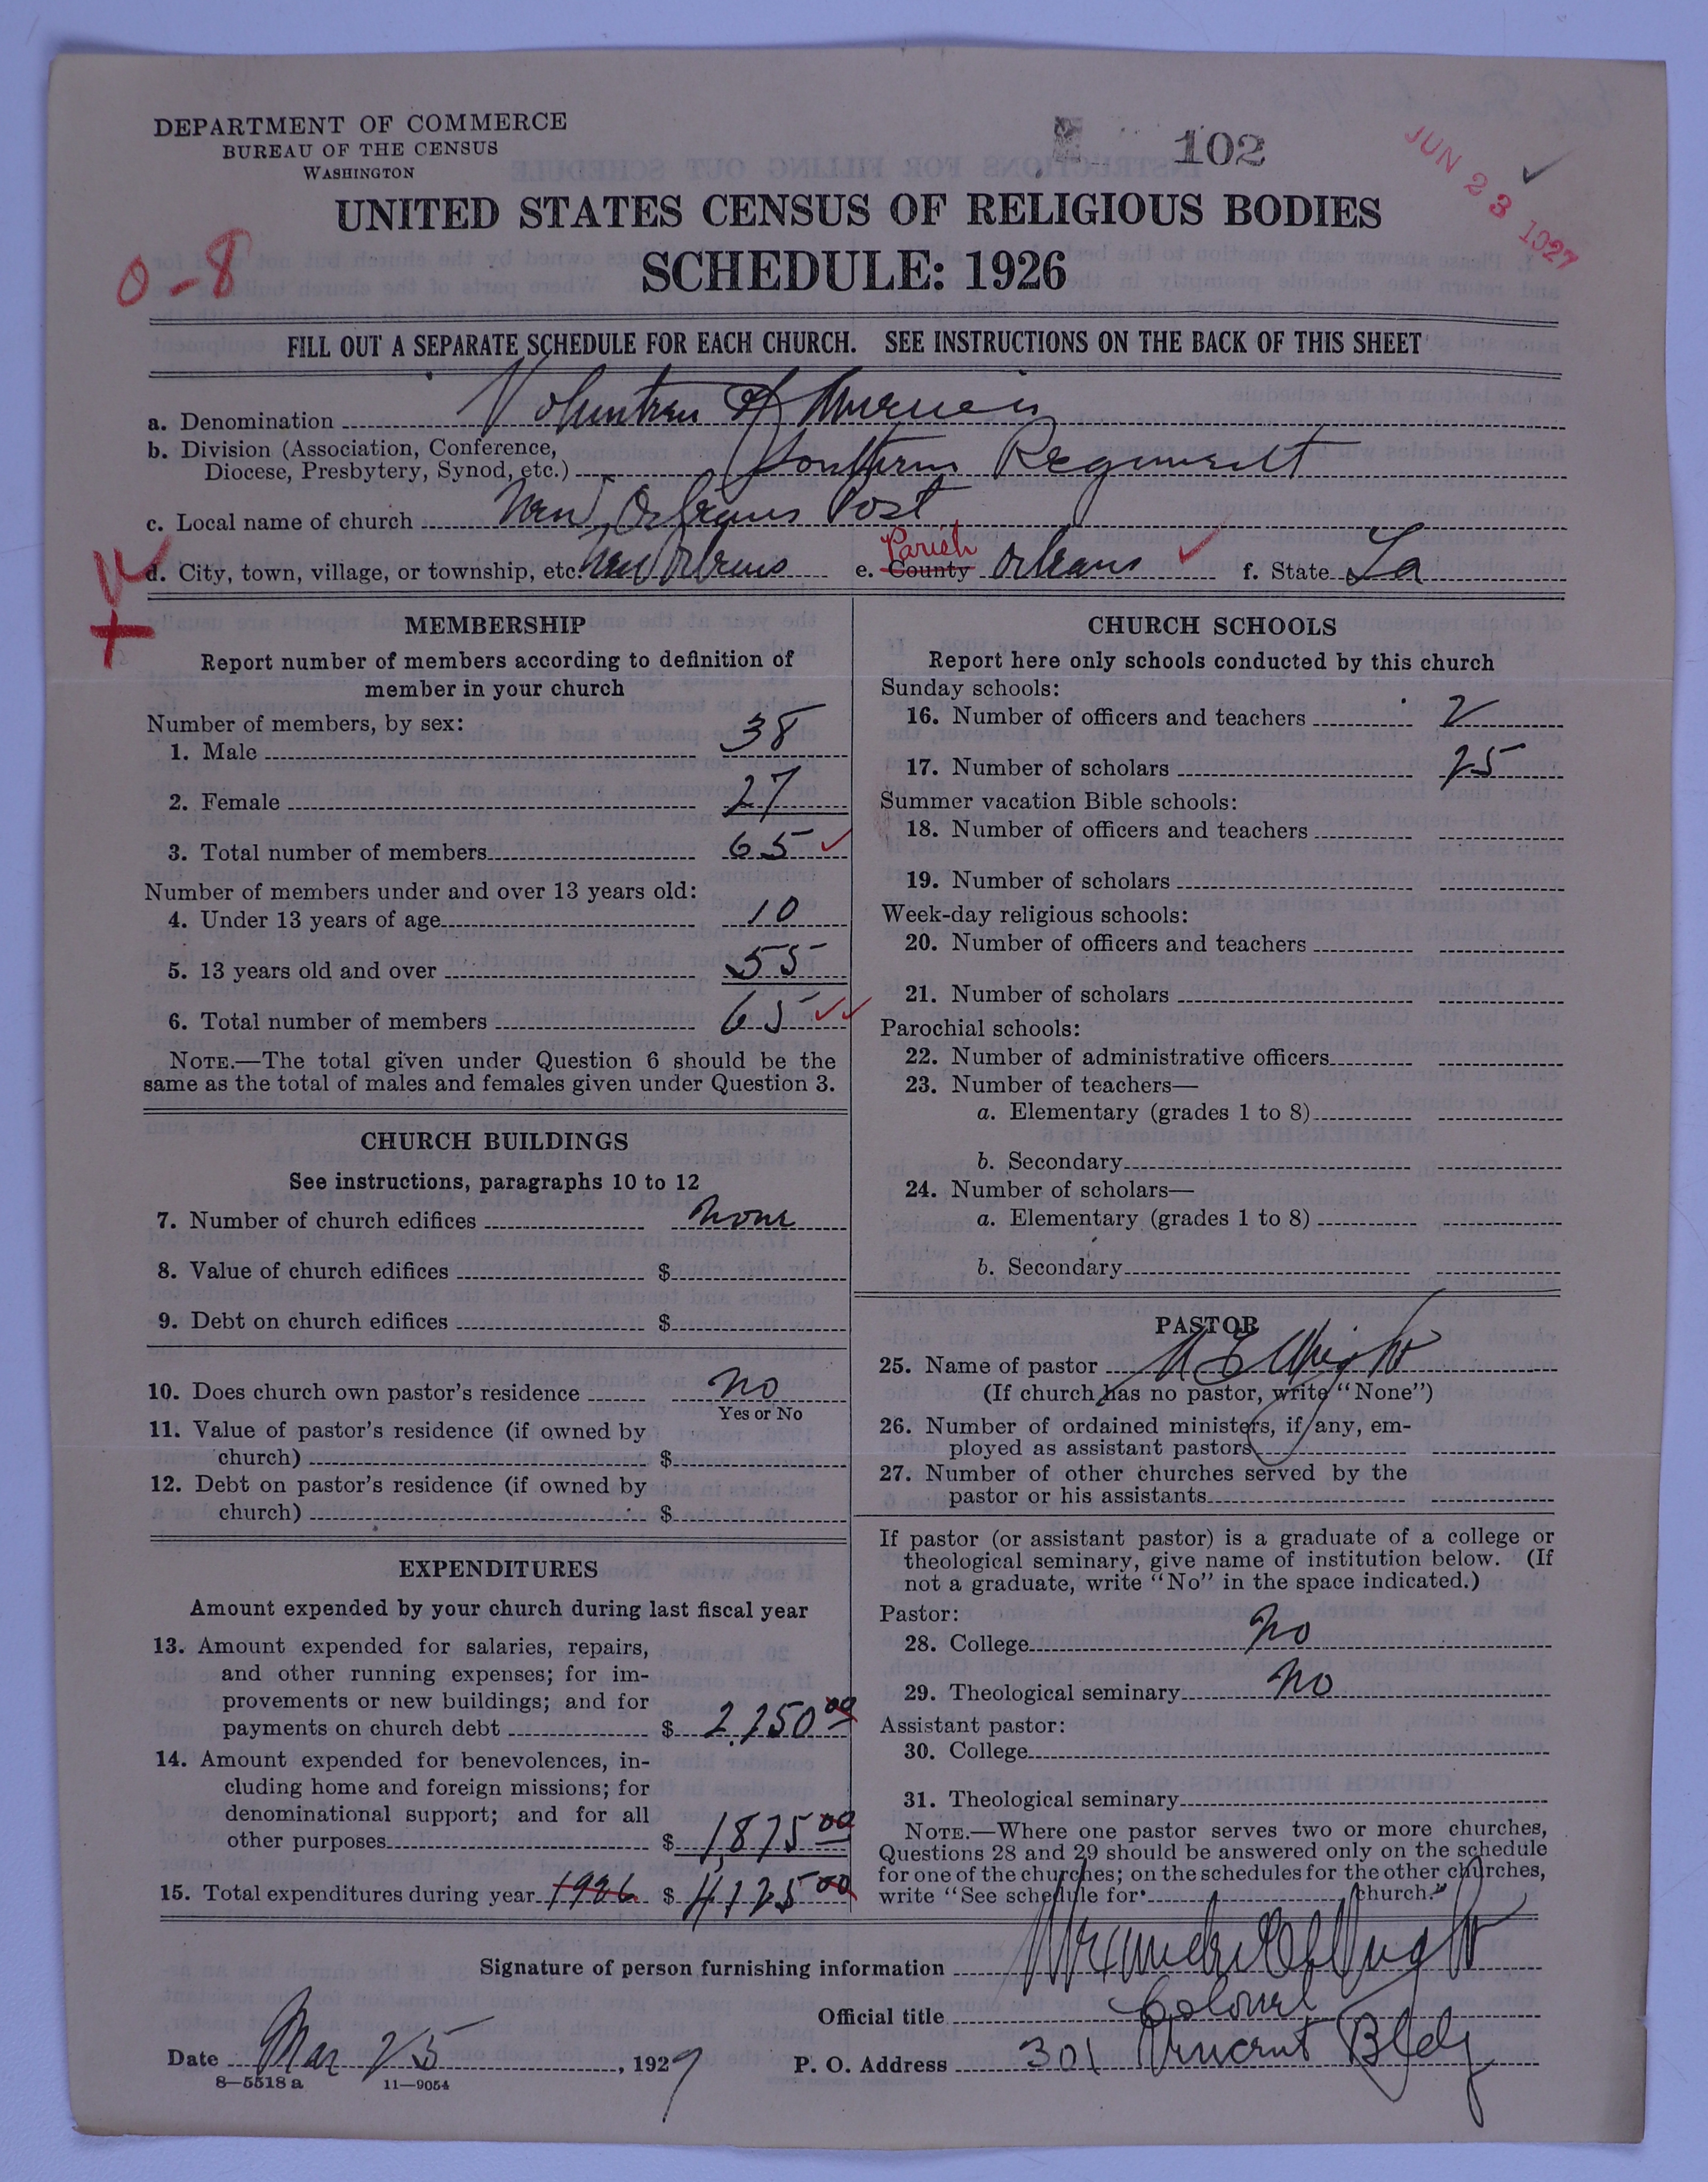 DEPARTMENT OF COMMERCE
BUREAU OF THE CENSUS
WASHINGTON
102
JUN 23 1927
UNITED STATES CENSUS OF RELIGIOUS BODIES
SCHEDULE: 1926
0-8
FILL OUT A SEPARATE SCHEDULE FOR EACH CHURCH. SEE INSTRUCTIONS ON THE BACK OF THIS SHEET
a. Denomination Volunteers of America
b. Division (Association, Conference,
Diocese, Presbytery, Synod, etc.) Southern Regiment
c. Local name of church New Orleans Post
d. City, town, village, or township, etc. New Orleans e. County Parish Orleans f. State La
MEMBERSHIP
Report number of members according to definition of
member in your church
Number of members, by sex:
1. Male 38
2. Female 27
3. Total number of members 65
Number of members under and over 13 years old:
4. Under 13 years of age 10
5. 13 years old and over 55
6. Total number of members 65
NOTE.—The total given under Question 6 should be the
same as the total of males and females given under Question 3.
CHURCH BUILDINGS
See instructions, paragraphs 10 to 12
7. Number of church edifices None
8. Value of church edifices $
9. Debt on church edifices $
10. Does church own pastor's residence No
Yes or No
11. Value of pastor's residence (if owned by
church) $
12. Debt on pastor's residence (if owned by
church) $
EXPENDITURES
Amount expended by your church during last fiscal year
13. Amount expended for salaries, repairs,
and other running expenses; for im-
provements or new buildings; and for
payments on church debt $ 2,250 00
14. Amount expended for benevolences, in-
cluding home and foreign missions; for
denominational support; and for all
other purposes $ 1,875 00
15. Total expenditures during year 1926 $ 4125 00
CHURCH SCHOOLS
Report here only schools conducted by this church
Sunday schools:
16. Number of officers and teachers 2
17. Number of scholars 25
Summer vacation Bible schools:
18. Number of officers and teachers
19. Number of scholars
Week-day religious schools:
20. Number of officers and teachers
21. Number of scholars
Parochial schools:
22. Number of administrative officers
23. Number of teachers—
a. Elementary (grades 1 to 8)
b. Secondary
24. Number of scholars—
a. Elementary (grades 1 to 8)
b. Secondary
PASTOR
25. Name of pastor Wright
(If church has no pastor, write "None")
26. Number of ordained ministers, if any, em-
ployed as assistant pastors
27. Number of other churches served by the
pastor or his assistants
If pastor (or assistant pastor) is a graduate of a college or
theological seminary, give name of institution below. (If
not a graduate, write "No" in the space indicated.)
Pastor:
28. College No
29. Theological seminary No
Assistant pastor:
30. College
31. Theological seminary
NOTE.—Where one pastor serves two or more churches,
Questions 28 and 29 should be answered only on the schedule
for one of the churches; on the schedules for the other churches,
write "See schedule for church."
Signature of person furnishing information Wright
Official title Colonel
Date Mar 25, 1927 P. O. Address 301 Vincent Bldg
8—5518 a 11—9054